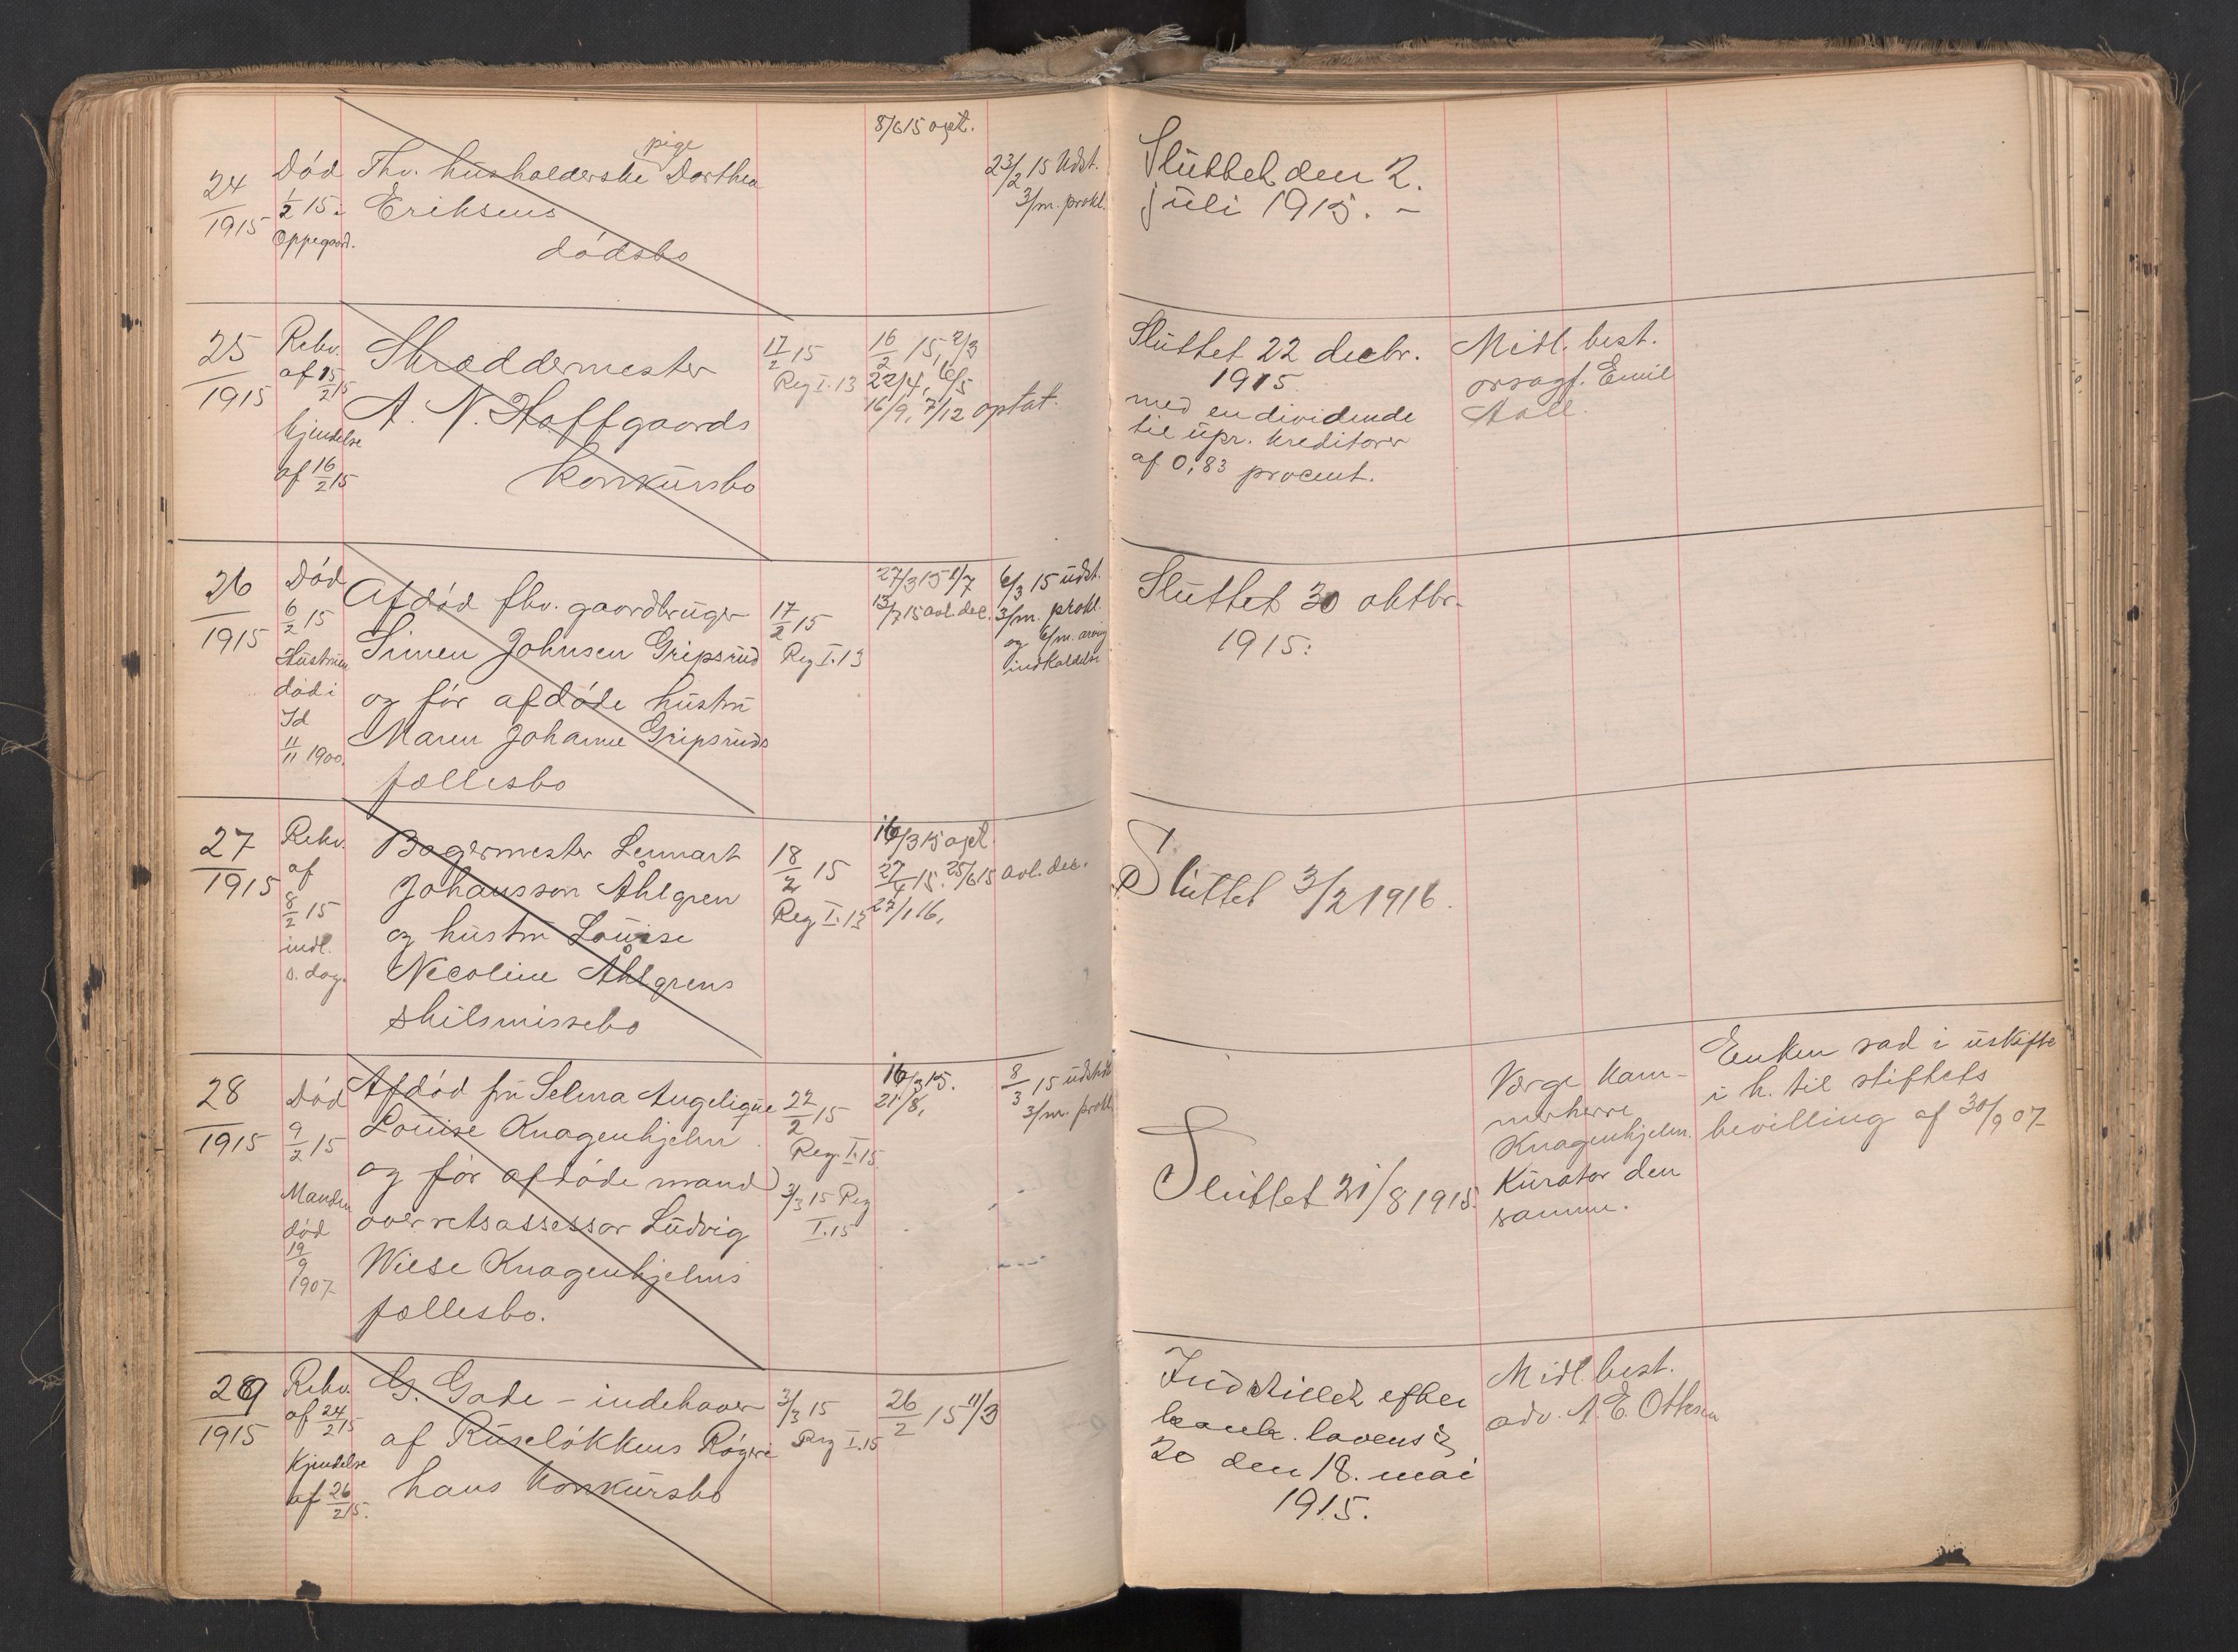 24
1915
Død
1/2 15.
Oppegaard.
pige
Thv. husholderske Dorthea
Eriksens
dødsbo
8/6 15 opt.
23/2 15 Udst.
3/m. prokl.
Sluttet den 2.
juli 1915. –
25
1915
Rekv.
af 15/2 15
Kjendelse
af 16/2 15
Skræddermester
A. N. Hoffgaards
konkursbo
17/2 15
Reg I. 13
16/2 15, 2/3
22/4, 6/5
16/9, 7/12 optat.
Sluttet 22 decbr.
1915
med en dividende
til upr. kreditorer
af 0,83 procent.
Midl. best.
orsagf. Emil
Aall.
26
1915
Død
6/2 15
Hustruen
død i
Id
11/11 1900.
Afdød fhv. gaardbruger
Simen Johnsen Gripsrud
og før afdøde hustru
Maren Johanne Gripsruds
fællesbo
17/2 15
Reg I. 13
27/3 15 1/7
13/7 15 avl. dec.
6/3 15 udst.
3/m. prokl.
og 6/m. arving
indkaldelse
Sluttet 30 oktbr.
1915.
27
1915
Rekv.
af
8/2 15
indl.
s. dag.
Bagermester Lennart
Johansson Åhlgren
og hustru Louise
Nicoline Åhlgrens
skilsmissebo
18/2 15
Reg I. 13
16/3 15 opt.
27/4 15. 25/6 15 avl. dec.
27/1 16,
Sluttet 3/2 1916.
28
1915
Død
9/2 15
Manden
død
19/9
1907
Afdød fru Selma Angelique
Louise Knagenhjelm
og før afdøde mand
overretsassessor Ludvig
Wiese Knagenhjelms
fællesbo.
22/2 15
Reg. I. 15
3/3 15 Reg
I. 15
16/3 15.
21/8,
8/3 15 udstedt
3/m. prokl.
Sluttet 21/8 1915.
Værge kam-
merherre
Knagenhjelm.
Kurator den
samme.
Enken sad i uskifte
i h. til stiftets
bevilling af 30/9 07
29
1915
Rekv.
af 24/2 15
Kjendelse
af 26/2 15.
G. Gade – indehaver
af Ruseløkkens Røgeri
hans konkursbo
3/3 15
Reg I. 15
26/2 15 11/3
Indstillet efter
konk. lovens §
20 den 18. mai
1915.
Midl. best.
adv. A. E. Ottesen